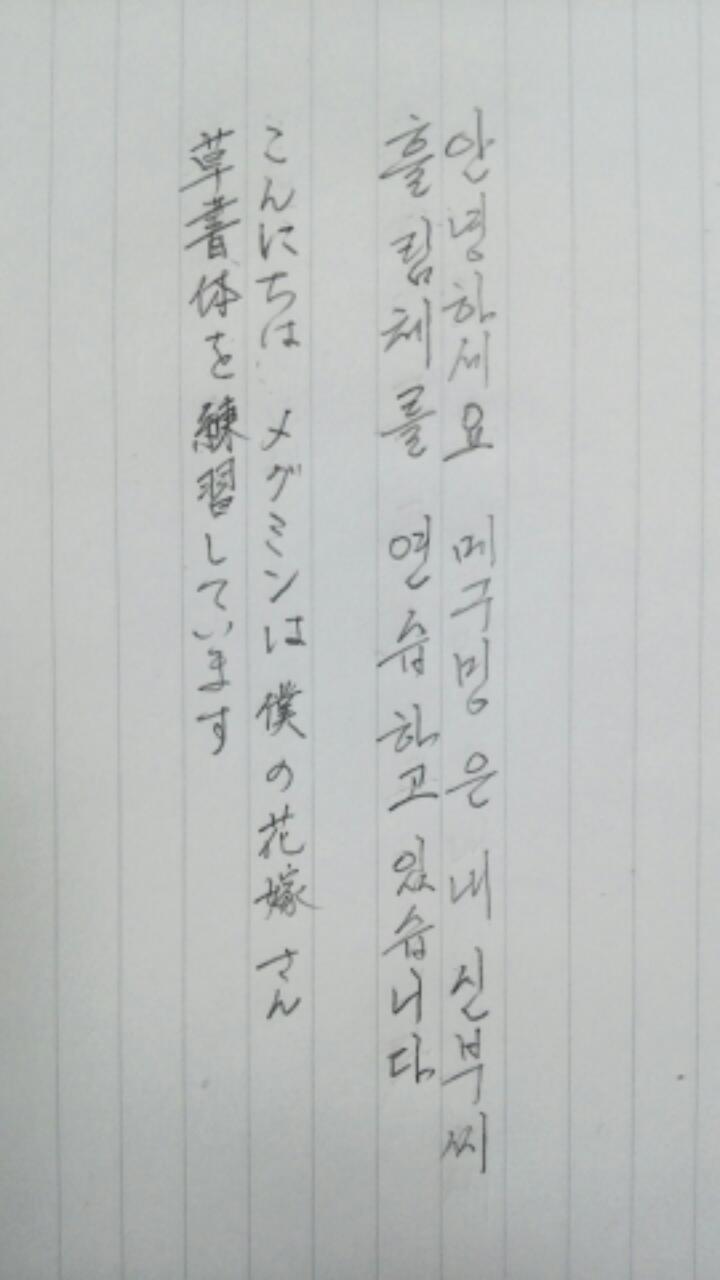 안녕하세요 메구밍은 내 신부씨
흘림체를 연습하고 있습니다
こんにちは メグミンは 僕の花嫁さん
草書体を練習しています